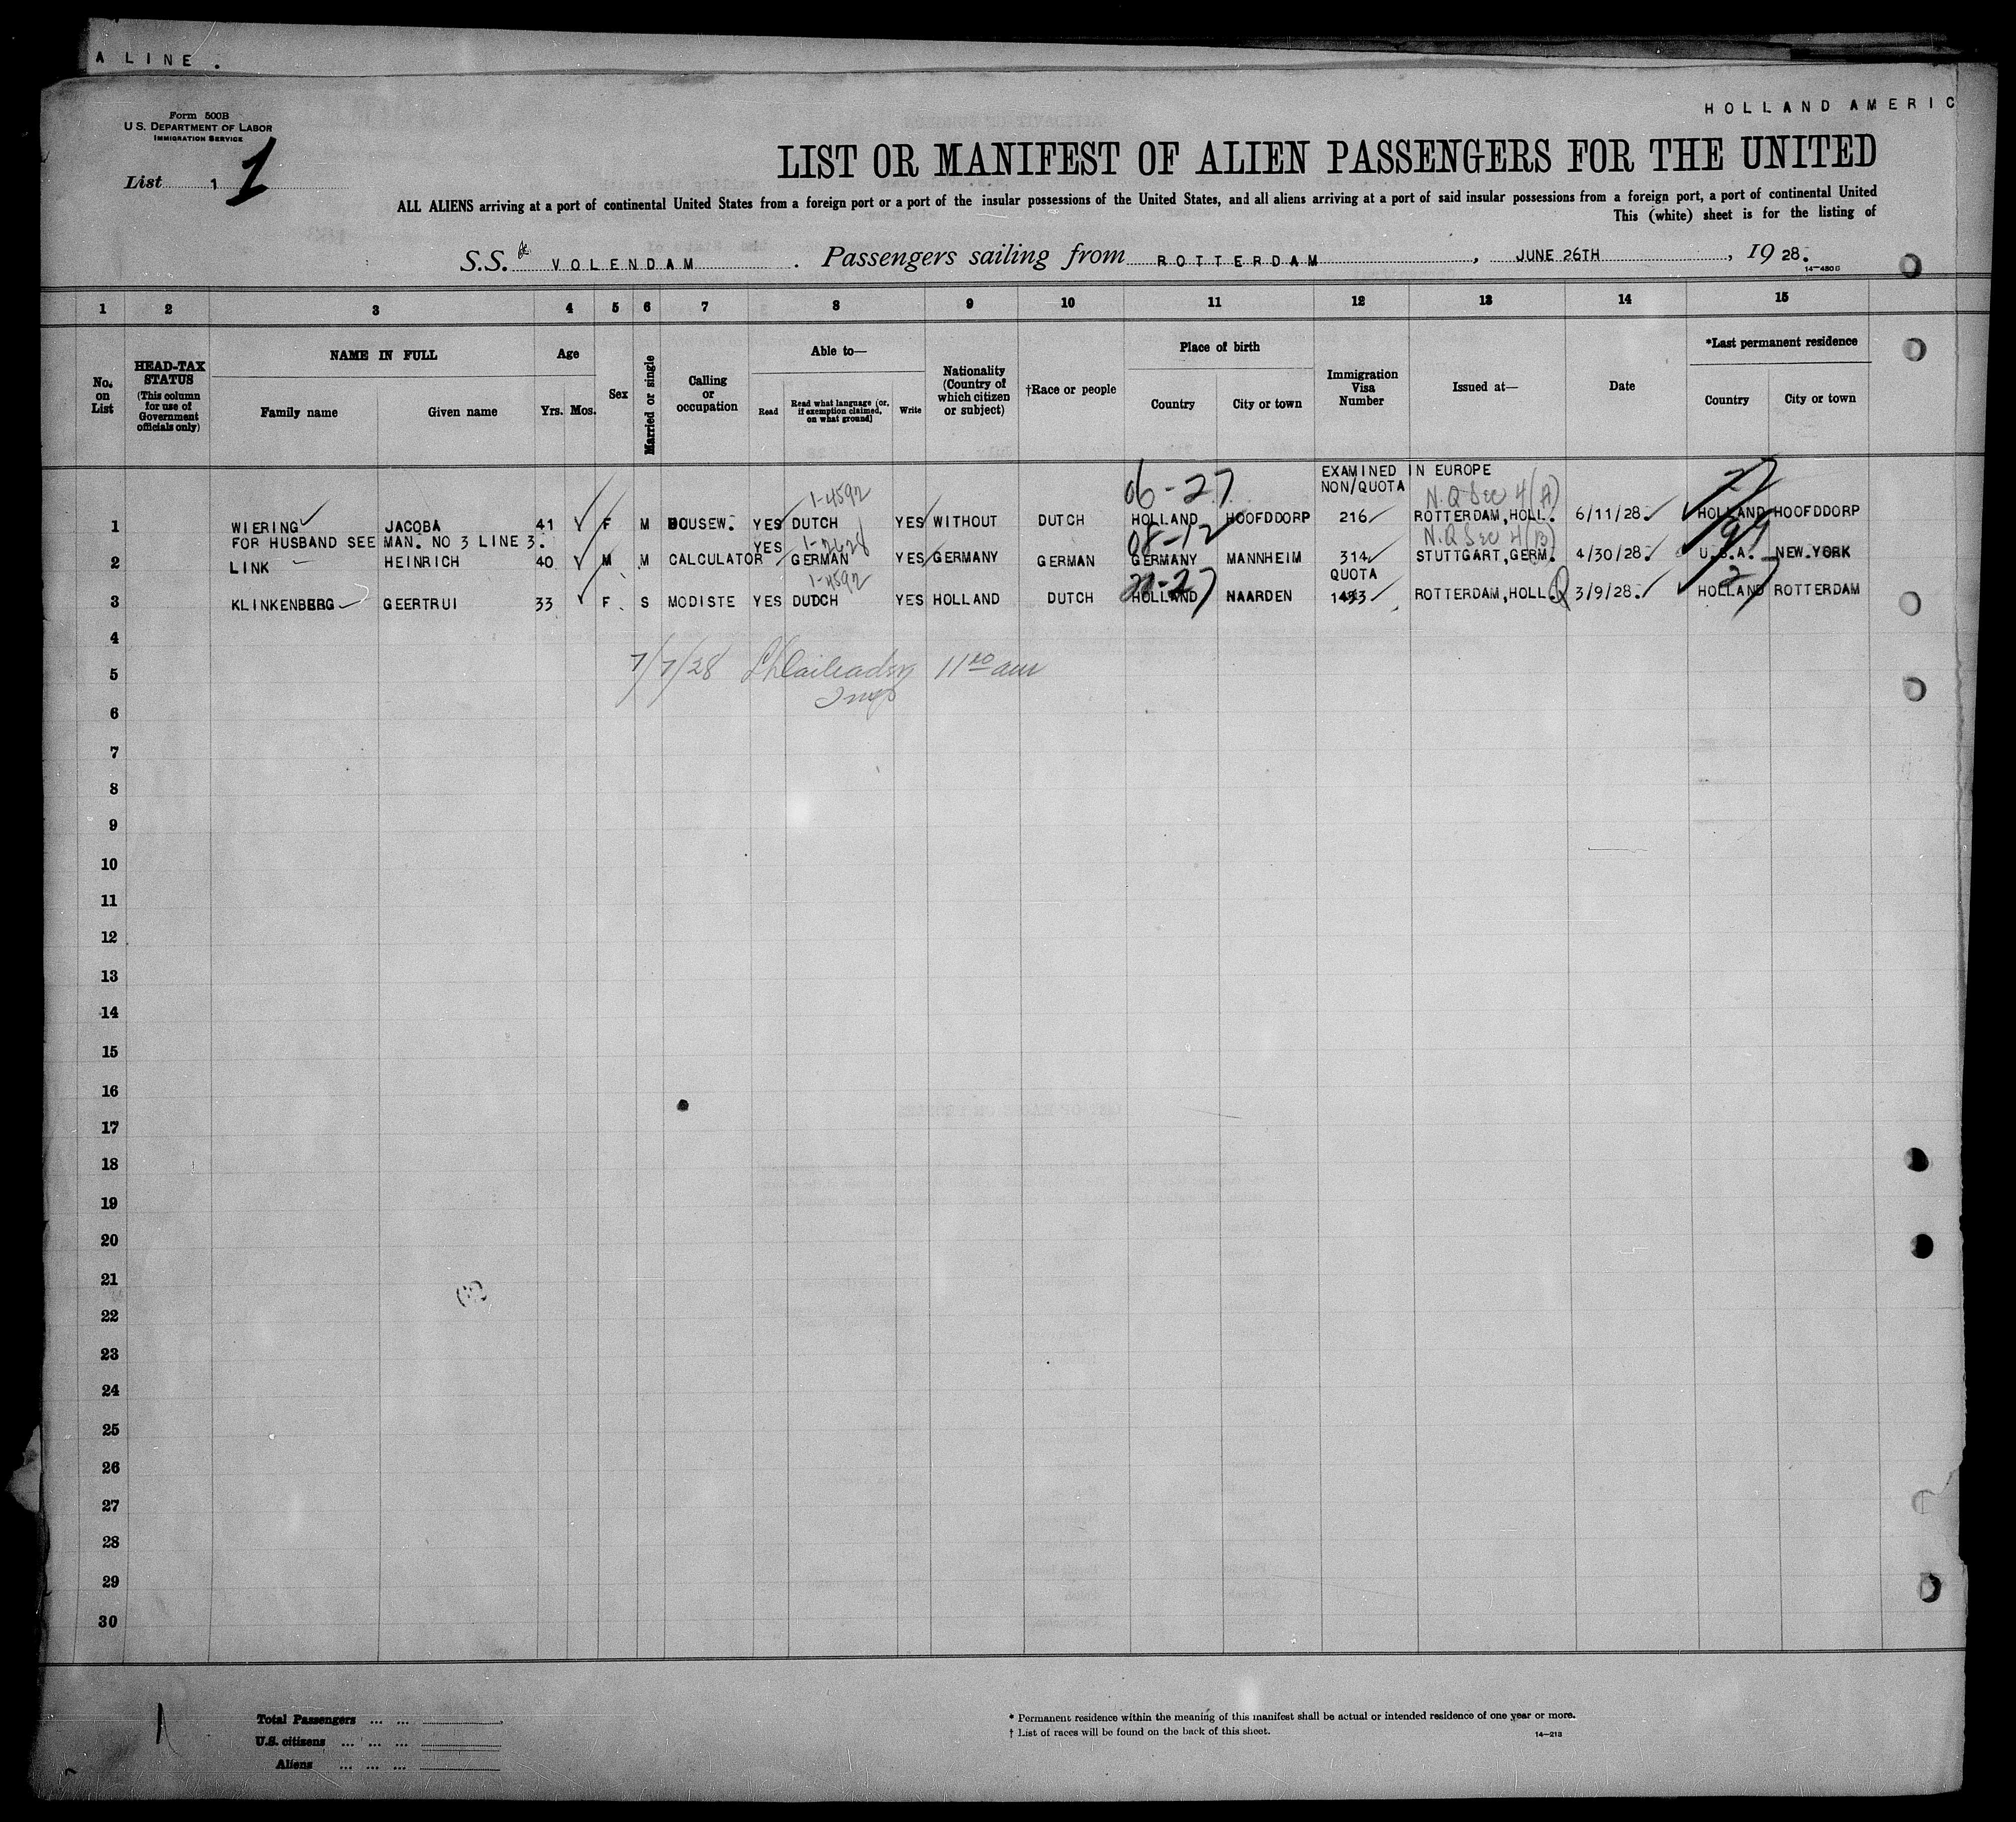 A LINE .
HOLLAND AMERIC
Form 500B
U.S. DEPARTMENT OF LABOR
IMMIGRATION SERVICE
List 1 1
LIST OR MANIFEST OF ALIEN PASSENGERS FOR THE UNITED
ALL ALIENS arriving at a port of continental United States from a foreign port or a port of the insular possessions of the United States, and all aliens arriving at a port of said insular possessions from a foreign port, a port of continental United
This (white) sheet is for the listing of
S.S. VOLENDAM . Passengers sailing from ROTTERDAM , JUNE 26TH , 19 28.
14-480 B
1 2 3 4 5 6 7 8 9 10 11 12 13 14 15
No. on List
HEAD-TAX STATUS (This column for use of Government officials only)
NAME IN FULL
Family name Given name
Age
Yrs. Mos.
Sex
Married or single
Calling or occupation
Able to—
Read
Read what language (or, if exemption claimed, on what ground)
Write
Nationality (Country of which citizen or subject)
†Race or people
Place of birth
Country City or town
Immigration Visa Number
Issued at—
Date
*Last permanent residence
Country City or town
EXAMINED IN EUROPE
NON/QUOTA
1-4592 06-27 N.Q Sec 4(A) 27
1 WIERING JACOBA 41 F M HOUSEW. YES DUTCH YES WITHOUT DUTCH HOLLAND HOOFDDORP 216 ROTTERDAM, HOLL. 6/11/28. HOLLAND HOOFDDORP
FOR HUSBAND SEE MAN. NO 3 LINE 3.
1-2628 08-12 N.Q Sec 4(B) 99
2 LINK HEINRICH 40 M M CALCULATOR YES GERMAN YES GERMANY GERMAN GERMANY MANNHEIM 314 STUTTGART, GERM. 4/30/28. U.S.A. NEW.YORK
QUOTA
1-4592 27
3 KLINKENBERG GEERTRUI 33 F. S MODISTE YES DUTCH YES HOLLAND DUTCH HOLLAND NAARDEN 1433 ROTTERDAM, HOLL. Q 3/9/28. HOLLAND ROTTERDAM
4
5 7/7/28 11
6
7
8
9
10
11
12
13
14
15
16
17
18
19
20
21
22
23
24
25
26
27
28
29
30
Total Passengers ... ...
U.S. citizens ... ... ...
Aliens ... ... ...
* Permanent residence within the meaning of this manifest shall be actual or intended residence of one year or more.
† List of races will be found on the back of this sheet.
14-213